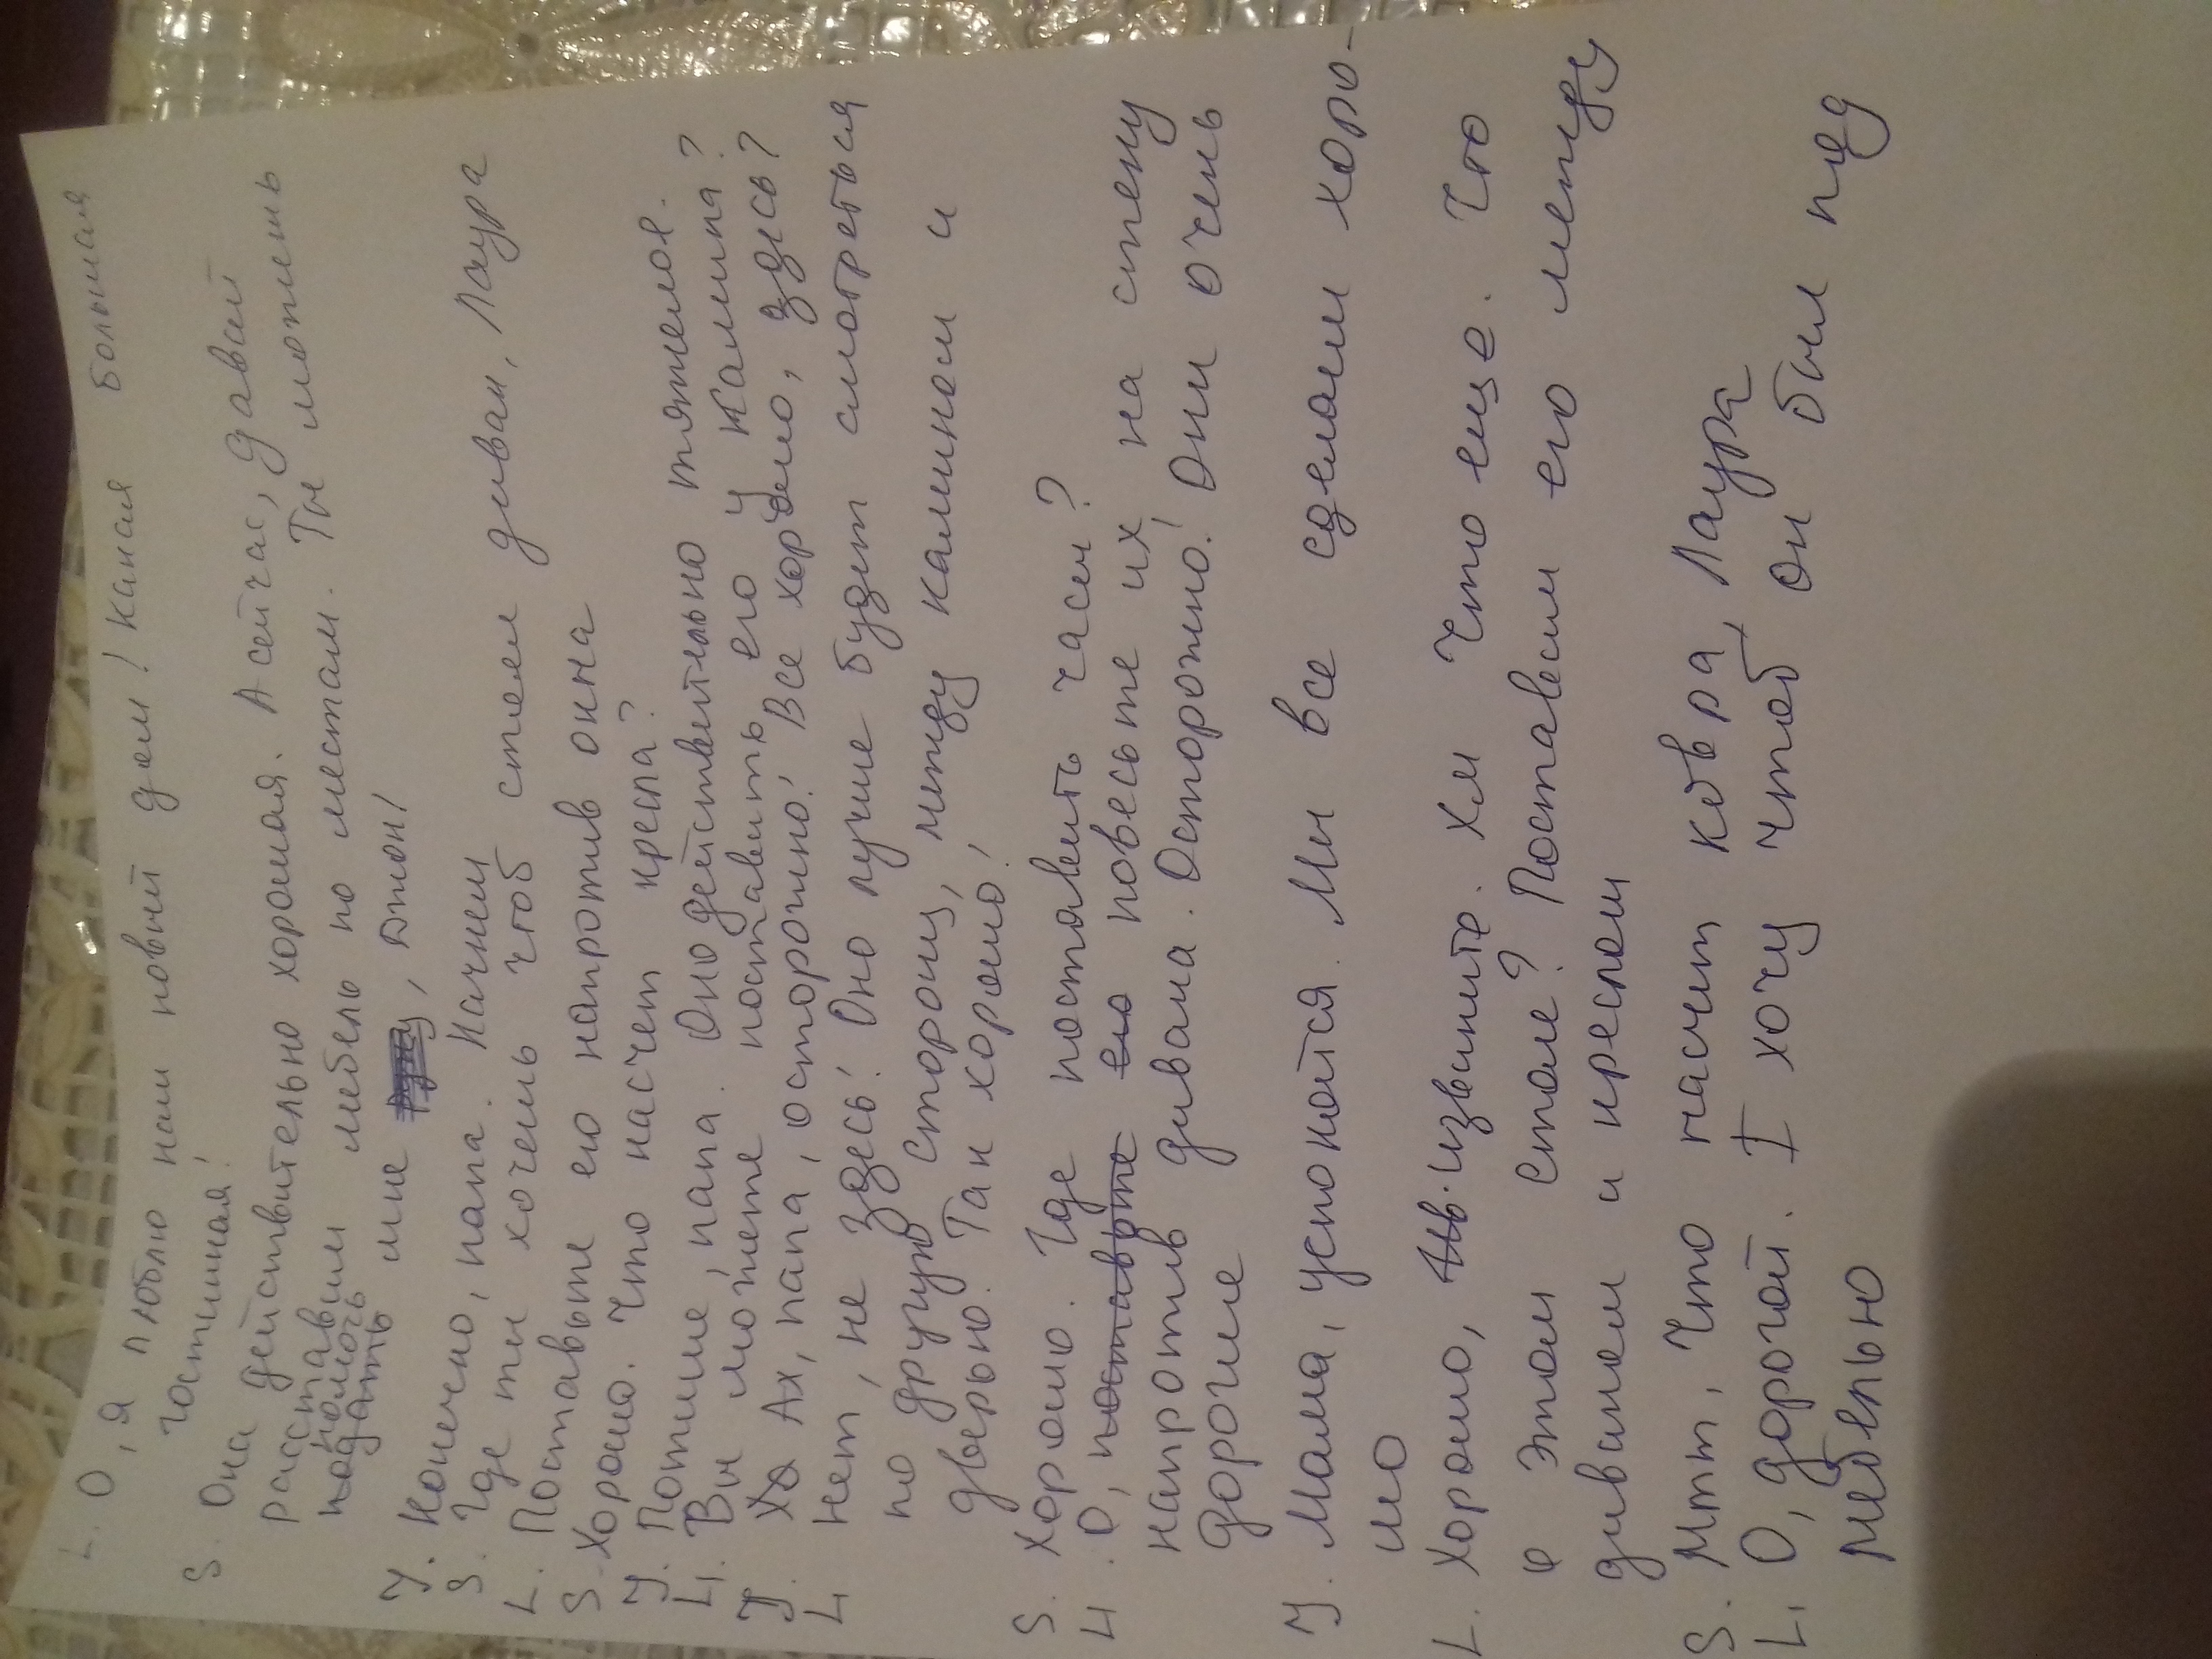 L. О, я люблю наш новый дом! Какая большая
гостинная!
S. Она действительно хорошая. А сейчас, давай
расставим мебель по местам. Ты можешь
помочь
подать мне, Джон!
J. Конечно, папа. Начнем
S. Где ты хочешь чтоб стоял диван, Лаура
L. Поставьте его напротив окна
S. Хорошо. Что насчет кресла?
J. Потише, папа. Оно действительно тяжелое.
L. Вы можете поставить его у камина?
J. Ха Ах, папа, осторожно! Все хорошо, здесь?
L нет, не здесь! Оно лучше будет смотреться
по другую сторону, между камином и
дверью. Так хорошо!
S. Хорошо. Где поставить часы?
L. О, поставьте его повесьте их на стену
напротив дивана. Осторожно! Они очень
дорогие
J. Мама, успокойся. Мы все сделаем хоро-
шо
L. Хорошо, Извините. Хм Что еще. Что
о этом столе? Поставим его между
диваном и креслом
S. Мтт, Что насчет ковра, Лаура
L. О, дорогой. I хочу чтоб он был под
мебелью